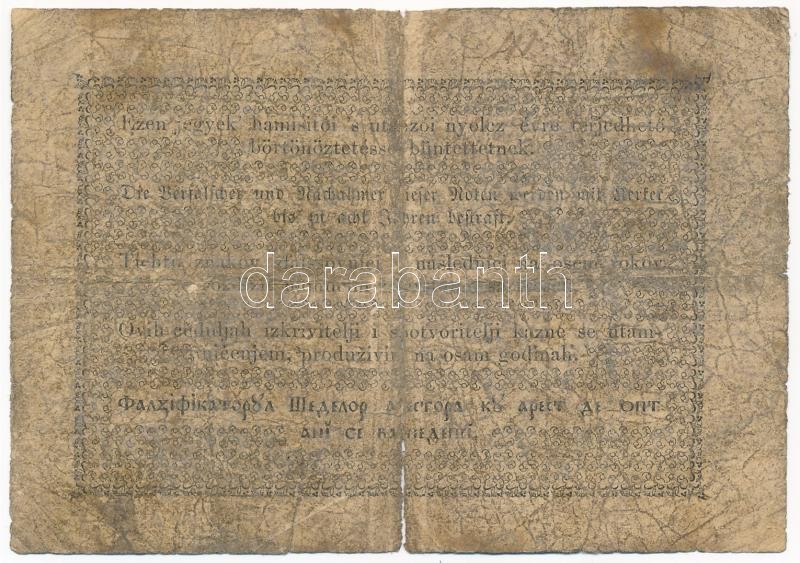 Ezen jegyek' hamisitói 's utánzói nyolcz évre terjedhető
börtönöztetéssel büntettetnek.
Die Verfälscher und Nachahmer dieser Noten werden mit Kerker
bis zu acht Jahren bestraft.
Tichto znakov následníci osem rokov
darabanth
Ovih ceduljah izkrivitelji i spotvoritelji kazne se utam-
ničenjem, produživim na osam godinah.
Фалҙіфікаторꙋл Шеделор ачестора кꙋ арест де опт
анї се ва педепсі.